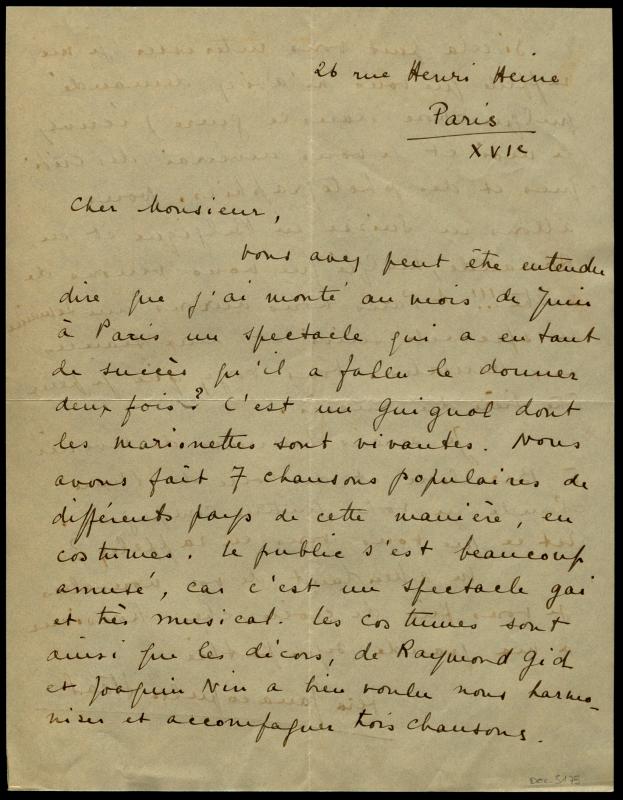 26 rue Henri Heine
Paris
XVIe
Cher Monsieur,
vous avez peut être entendu
dire que j'ai monté au mois de Juin
à Paris un spectacle qui a eu tant
de succès qu'il a fallu le donner
deux fois? C'est un Guignol dont
les marionettes sont vivantes. Nous
avons fait 7 chansons populaires de
différents pays de cette manière, en
costumes. Le public s'est beaucoup
amusé, car c'est un spectacle gai
et très musical. Les costumes sont
ainsi que les décors, de Raymond Gid
et Joaquin Nin a bien voulu nous harmo-
niser et accompagner trois chansons.
Doc-5175